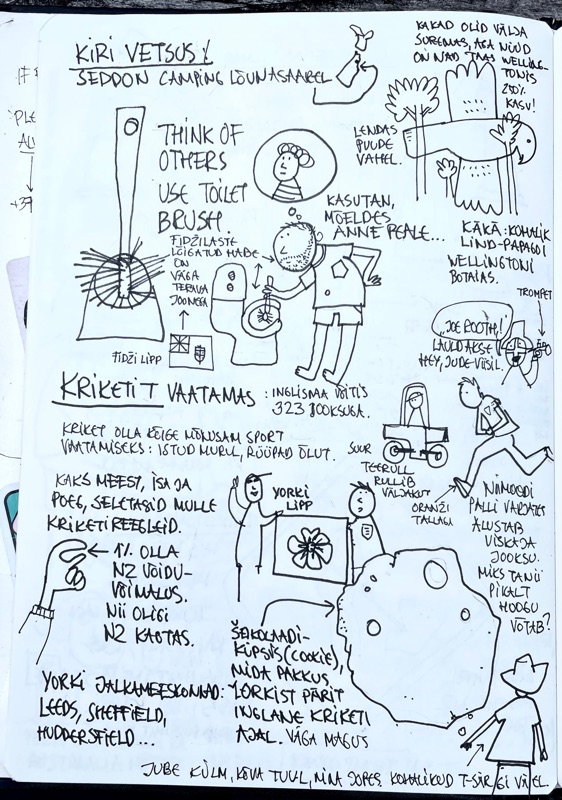 KIRI VETSUS:
SEDDON CAMPING LÕUNASAAREL
KAKAD OLID VÄLJA
SUREMAS, AGA NÜÜD
ON NAD TAAS WELLING-
TONIS
250%
KASV!
LENDAS
PUUDE
VAHEL.
THINK OF
OTHERS
USE TOILET
BRUSH.
KASUTAN,
MÕELDES
ANNE PEALE...
KÄKÄ: KOHALIK
LIND-PAPAGOI
WELLINGTONI
BOTAIAS.
FIDŽILASTE
LÕIGATUD HABE
ON
VÄGA
TERAVA
JOONEGA
FIDŽI LIPP
TROMPET
"JOE ROOTH,"
LAULDAKSE
HEY, JUDE VIISIL.
KRIKETIT VAATAMAS: INGLISMA VÕITIS
323 JOOKSUGA.
KRIKET OLLA KÕIGE MÕNUSAM SPORT
VAATAMISEKS: ISTUD MURUL, RÜÜPAD ÕLUT.
SUUR
TEERULL
RULLIB
VÄLJAKUT
ORANŽI
TALLAGA
KAKS MEEST, ISA JA
POEG, SELETASID MULLE
KRIKETIREEGLEID.
YORKI
LIPP
NIIMOODI
PALLI VARJATES
ALUSTAB
VISKAJA
JOOKSU.
MIKS TA NII
PIKALT
HOOGU
VÕTAB?
1% OLLA
NZ VÕIDU-
VÕIMALUS.
NII OLIGI
NZ KAOTAS.
ŠOKOLAADI-
KÜPSIS (COOKIE),
MIDA PAKKUS
YORKIST PÄRIT
INGLANE KRIKETI
AJAL. VÄGA MAGUS
YORKI JALKAMEESKONNAD:
LEEDS, SHEFFIELD,
HUDDERSFIELD...
JUBE KÜLM, KÕVA TUUL, NINA JOPES. KOHALIKUD T-SÄRGI VÄEL.